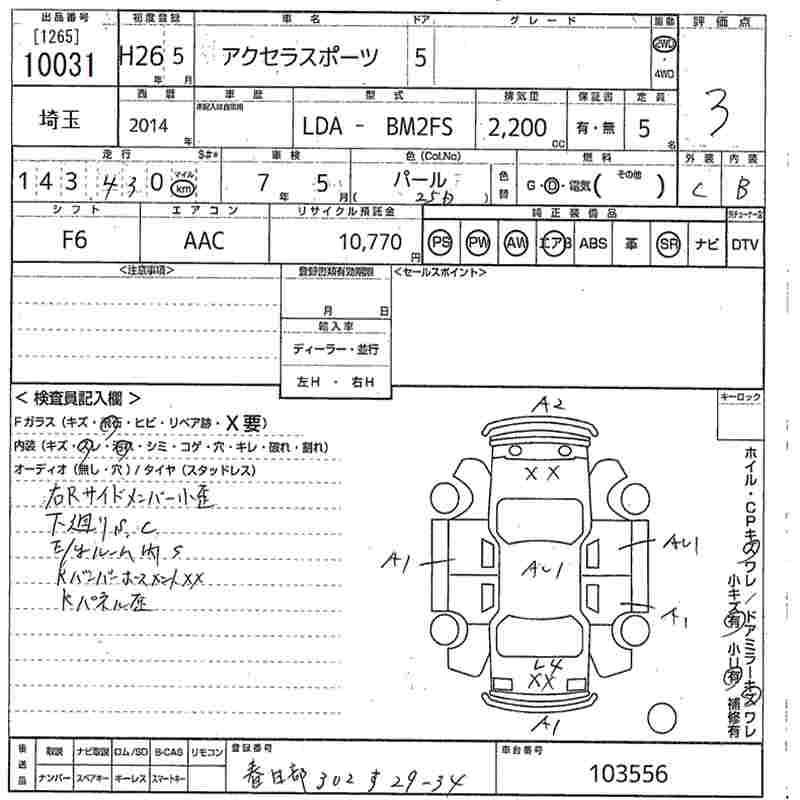 出品番号 初度登録 車名 ドア グレード 駆動 評価点
[1265]
10031 H26 5 アクセラスポーツ 5 2WD 3
年 月 4WD
西暦 車歴 型式 排気量 保証書 定員
未記入は自家用
埼玉 2014 LDA - BM2FS 2,200 有・無 5
年 CC 名
走行 S#* 車検 色(Col.No) 燃料 外装 内装
143,430 マイル km 7 年 5 月 パール 色替 G・D・電気( その他 ) C B
( 25D )
シフト エアコン リサイクル預託金 純正装備品
F6 AAC 10,770 円 PS PW AW エアB ABS 革 SR ナビ DTV
<注意事項> 登録書類有効期限 <セールスポイント>
月 日
輸入車
ディーラー・並行
左H ・ 右H
< 検査員記入欄 > キーロック
Fガラス(キズ・飛石・ヒビ・リペア跡・X要)
内装(キズ・スレ・汚れ・シミ・コゲ・穴・キレ・破れ・割れ)
オーディオ(無し・穴)/タイヤ(スタッドレス)
右Rサイドメンバー小歪
下廻りS, C
E/gルーム内 S
RバンパーホースメントXX
Rパネル歪
A2
XX
A1 AU1 AU1
A1
L4
XX
A1
ホイル・CPキズワレ/ドアミラーキズワレ
小キズ有 小U有 補修有
後送品 取説 ナビ取説 ロム/SD B-CAS リモコン 登録番号 車台番号
ナンバー スペアキー キーレス スマートキー 春日部 302 す 29-34 103556